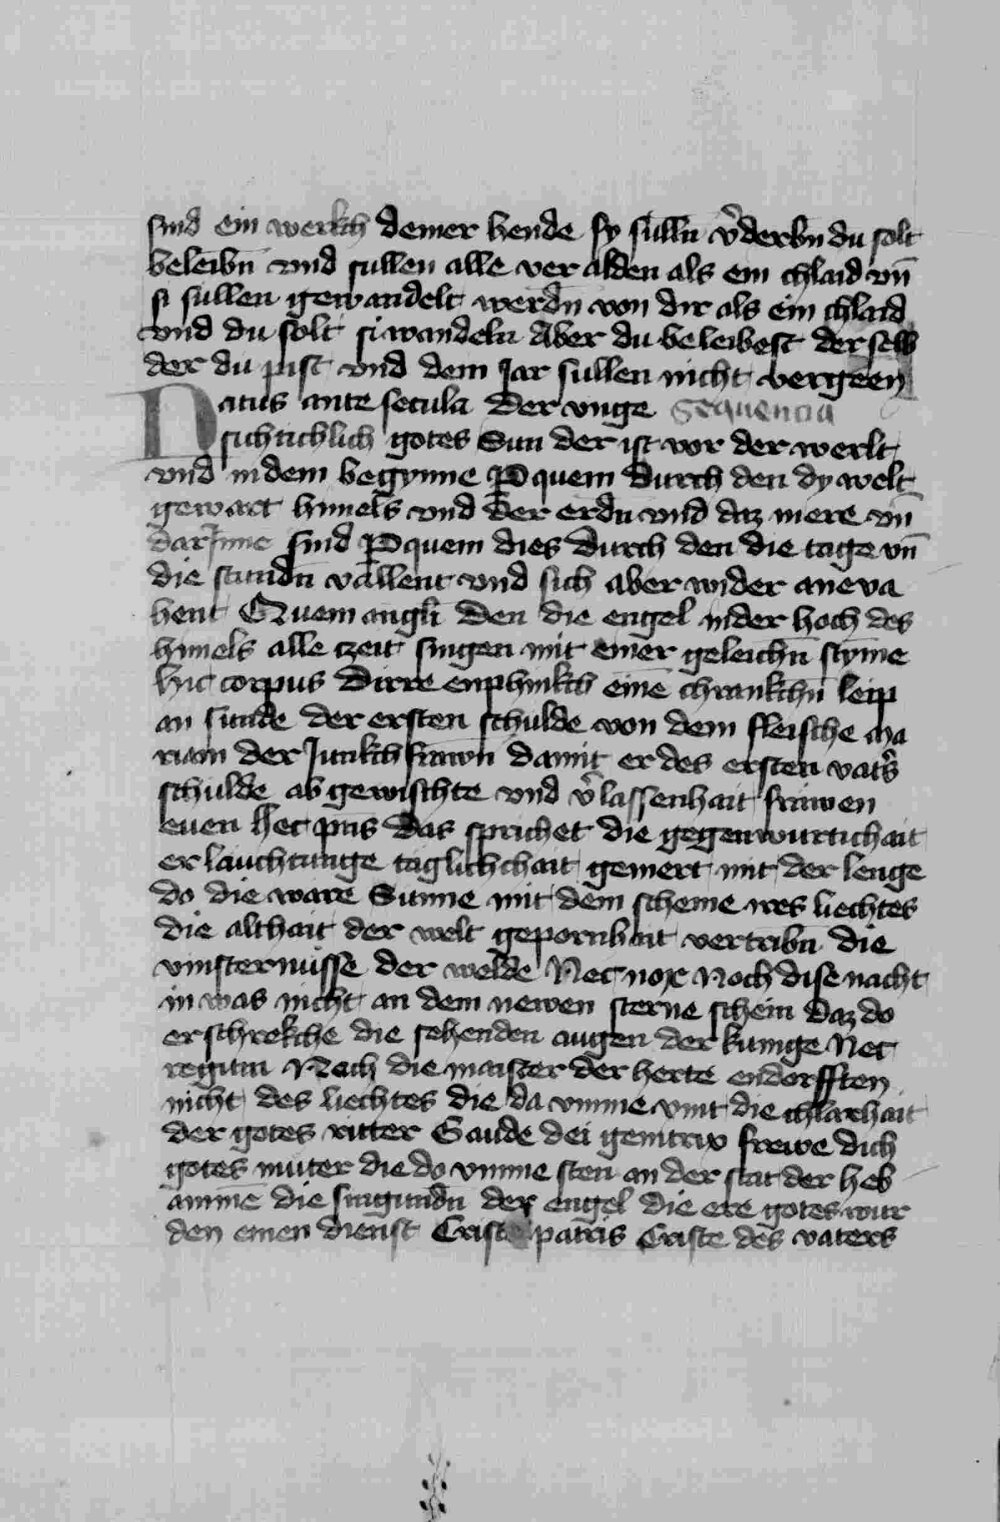 sind ein werkch deiner hende sy sulln v̉derbn̄ du solt
beleibn̄ vnd sullen alle ver alden als ein chlaid vn̄
si sullen gewandelt werdn̄ von dir als ein chlaid
vnd du solt si wandeln Aber du beleibest der selb
der du pist vnd dein Jar sullen nicht vergeen
Natus ante secula Der vnge Sequencia
sichtichlich gotes Sun der ist vor der werlt
vnd in dem begynne P quem Durch den dy welt
gewact himels vnd der erdn vnd daz mere vn̄
dar Jnne sind P quem dies Durch den die tage vn̄
die stundn̄ vallent vnd sich aber wider aneva
hent Quem angl̄i Den die engel in der hoch des
himels alle czeit singen mit einer geleichn̄ stym̄e
hic corpus Dirre enphinkch ein̄e chrankchn̄ leip
an sunde der ersten schulde von dem fleische ma
riam der Junkch frawn Damit er des ersten vatr̉s
schulde ab gewischte vnd v̉lassenhait frawen
euen Hec pn̄s Das sprichet die gegenwurtichait
erlauchtunge taglichchait gemert mit der lenge
do die ware Sunne mit dem scheine ires liechtes
die althait der welt gepornhait vertribn̄ die
vinsternusse der welde Nec nox Noch dise nacht
in was nicht an dem newen sterne schein daz do
erschrekche die sehenden augen der kunige Nec
regum Noch die maister der herte endorfften
nicht des liechtes die da vmme vint die chlarhait
der gotes ritter Gaude dei genitrix Frewe dich
gotes muter die do vmme sten an der stat der heb
amm̄e die singundn̄ der engel die ere gotes wur
den einen dienst Criste patris Criste des vaters